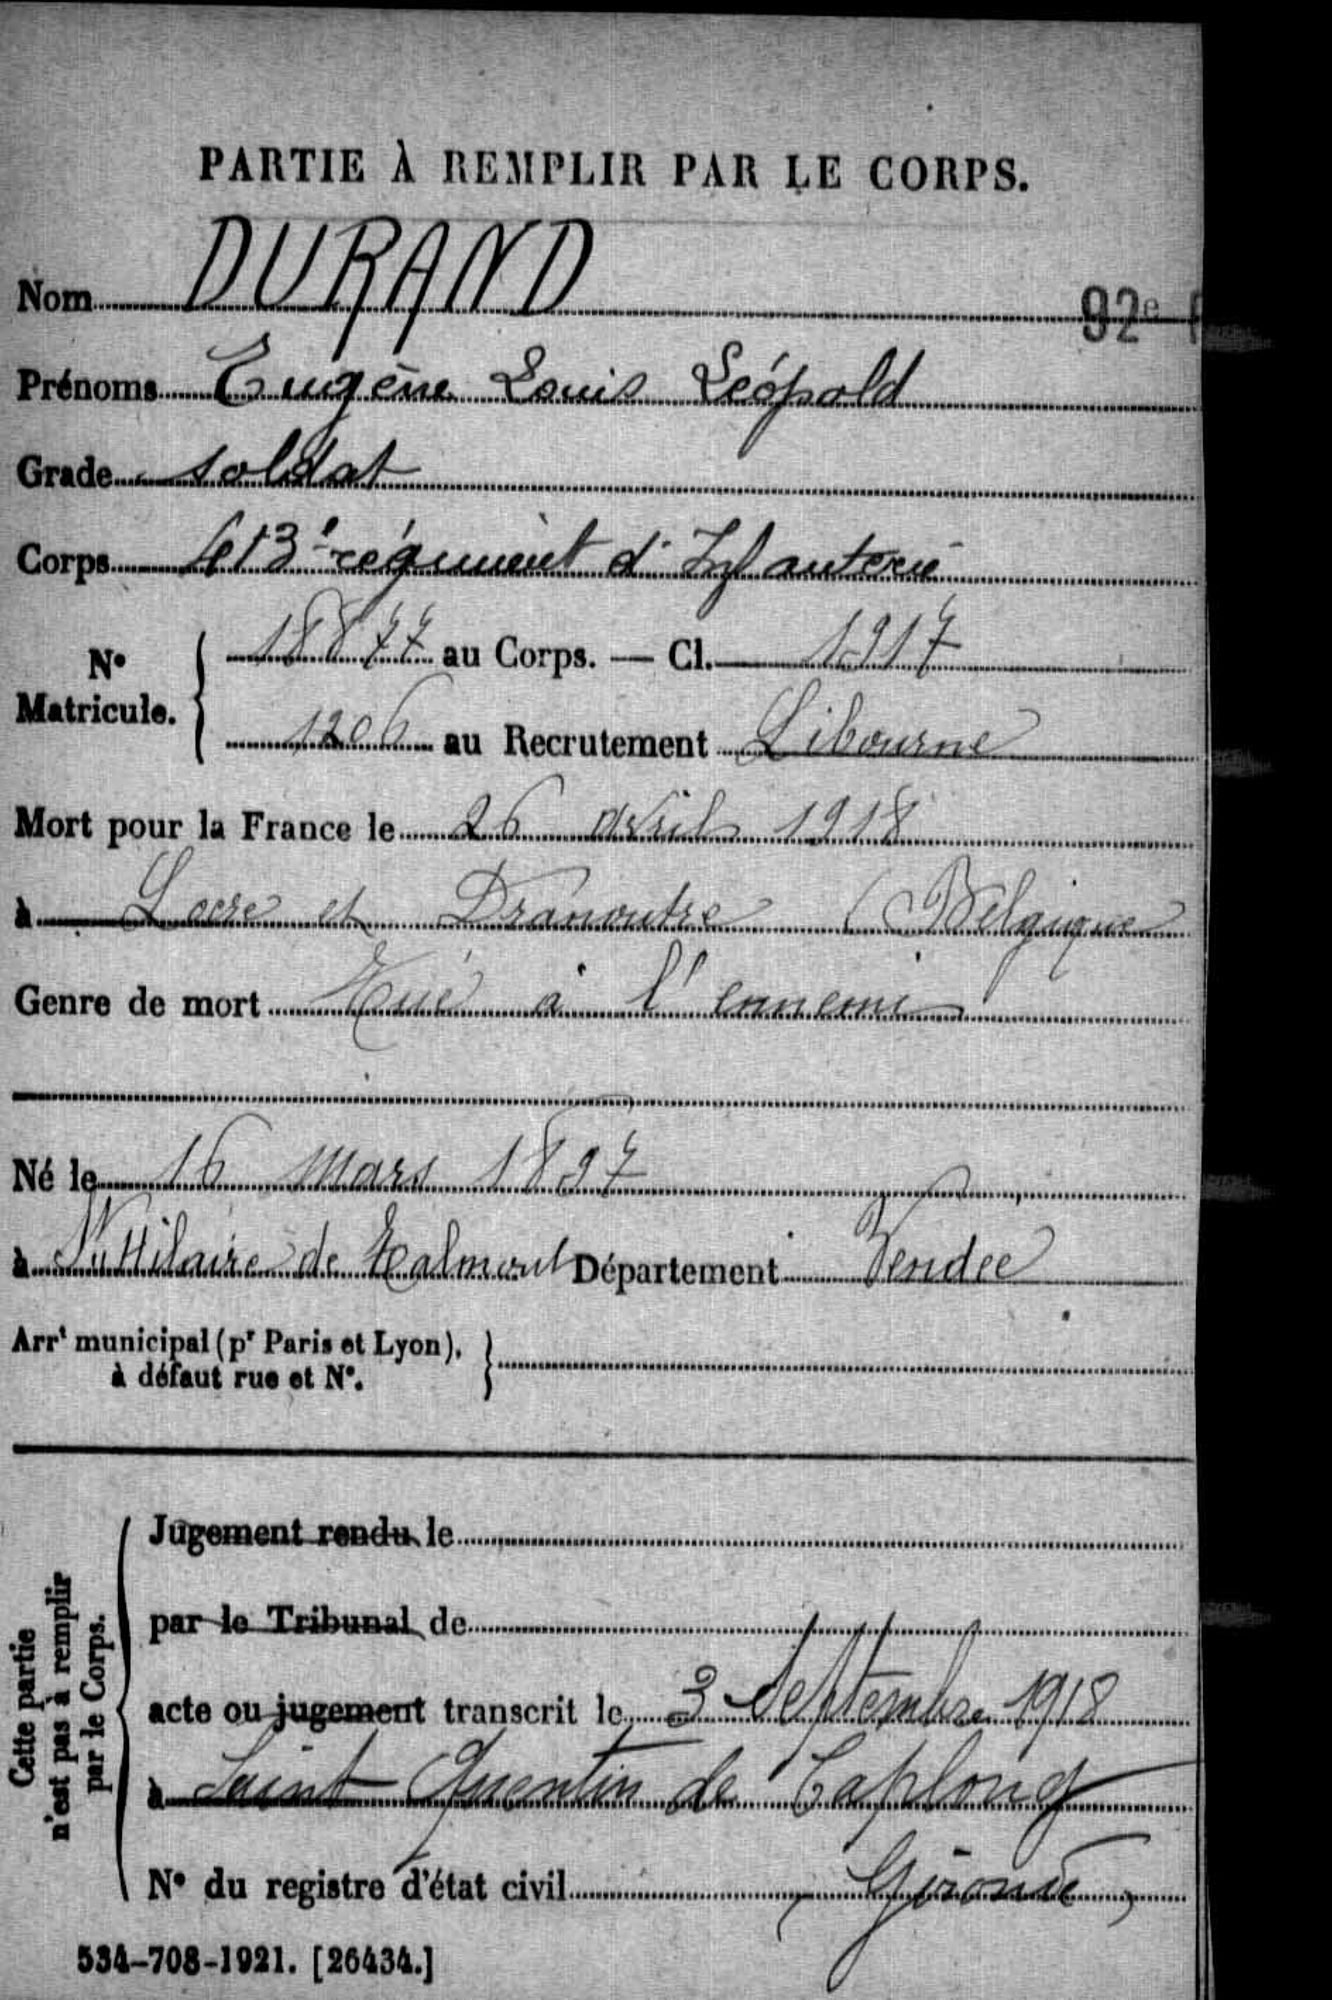 PARTIE À REMPLIR PAR LE CORPS.
Nom DURAND
92e
Prénoms Eugène Louis Léopold
Grade soldat
Corps 413e régiment d'Infanterie
No Matricule. { 18877 au Corps. — Cl. 1917
1206 au Recrutement Libourne
Mort pour la France le 26 Avril 1918
à Locre et Dranoutre (Belgique
Genre de mort Tué à l'ennemi
Né le 16 Mars 1897
à St Hilaire de Talmont Département Vendée
Arrt municipal (pr Paris et Lyon), }
à défaut rue et No.
Cette partie
n'est pas à remplir
par le Corps.
Jugement rendu le
par le Tribunal de
acte ou jugement transcrit le 3 Septembre 1918
à Saint Quentin de Caplong
No du registre d'état civil (Gironde)
534-708-1921. [26434.]